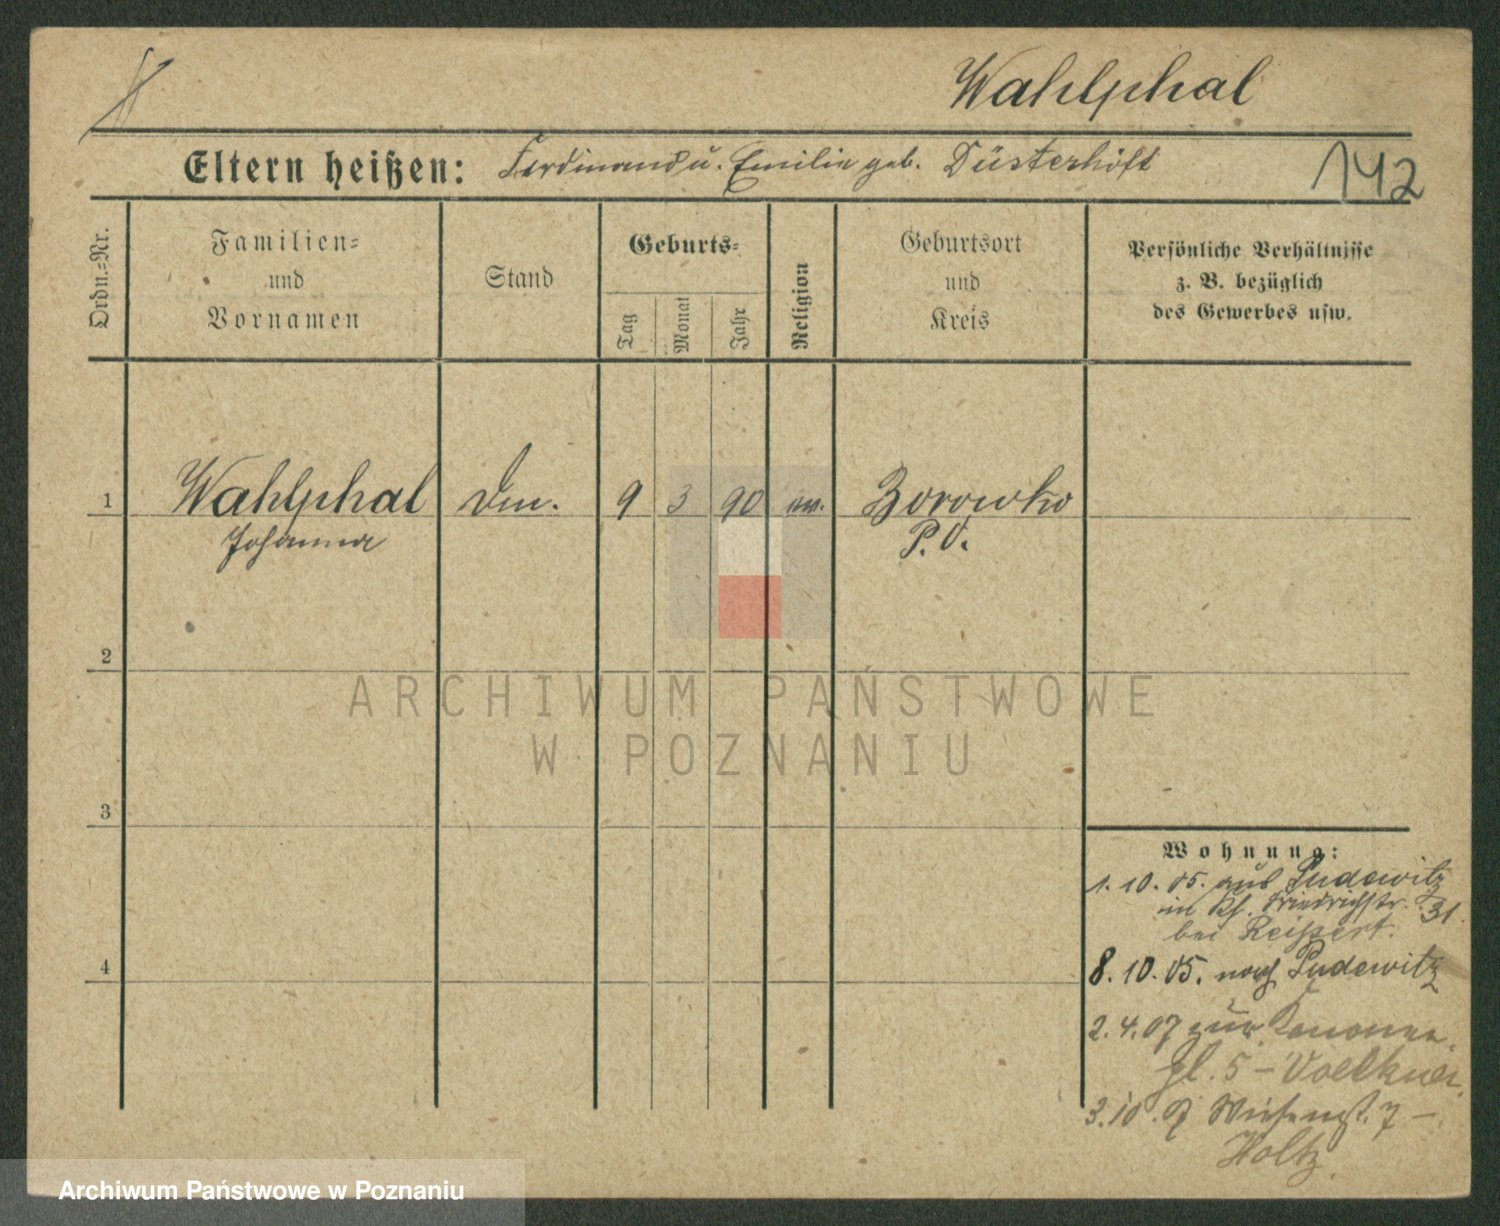 Wahlphal
Eltern heißen: Ferdinand u. Emilie geb. Düsterhöft
142
Ordn.=Nr.
Familien=
und
Vornamen
Stand
Geburts=
Tag
Monat
Jahr
Religion
Geburtsort
und
Kreis
Persönliche Verhältnisse
z. B. bezüglich
des Gewerbes usw.
1 Wahlphal 9 3 90 ev. Borowko
Johanna P.O.
2
ARCHIWUM PAŃSTWOWE
W POZNANIU
3
Wohnung:
1. 10. 05. aus Pudewitz
Friedrichstr. 31.
bei Reissert.
4
8. 10. 05. nach Pudewitz
2. 4. 07 zur Kanonen-
pl. 5 –
3. 10. Wiesenst. 7 –
Holtz.
Archiwum Państwowe w Poznaniu